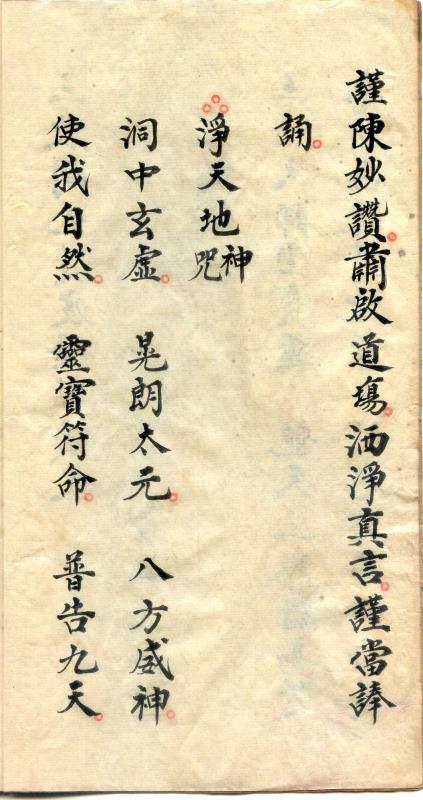 謹陳妙讚。肅啟道場。洒淨真言。謹當諱
誦。
淨天地神咒
洞中玄虛。 晃朗太元。 八方威神。
使我自然。 靈寶符命。 普告九天。